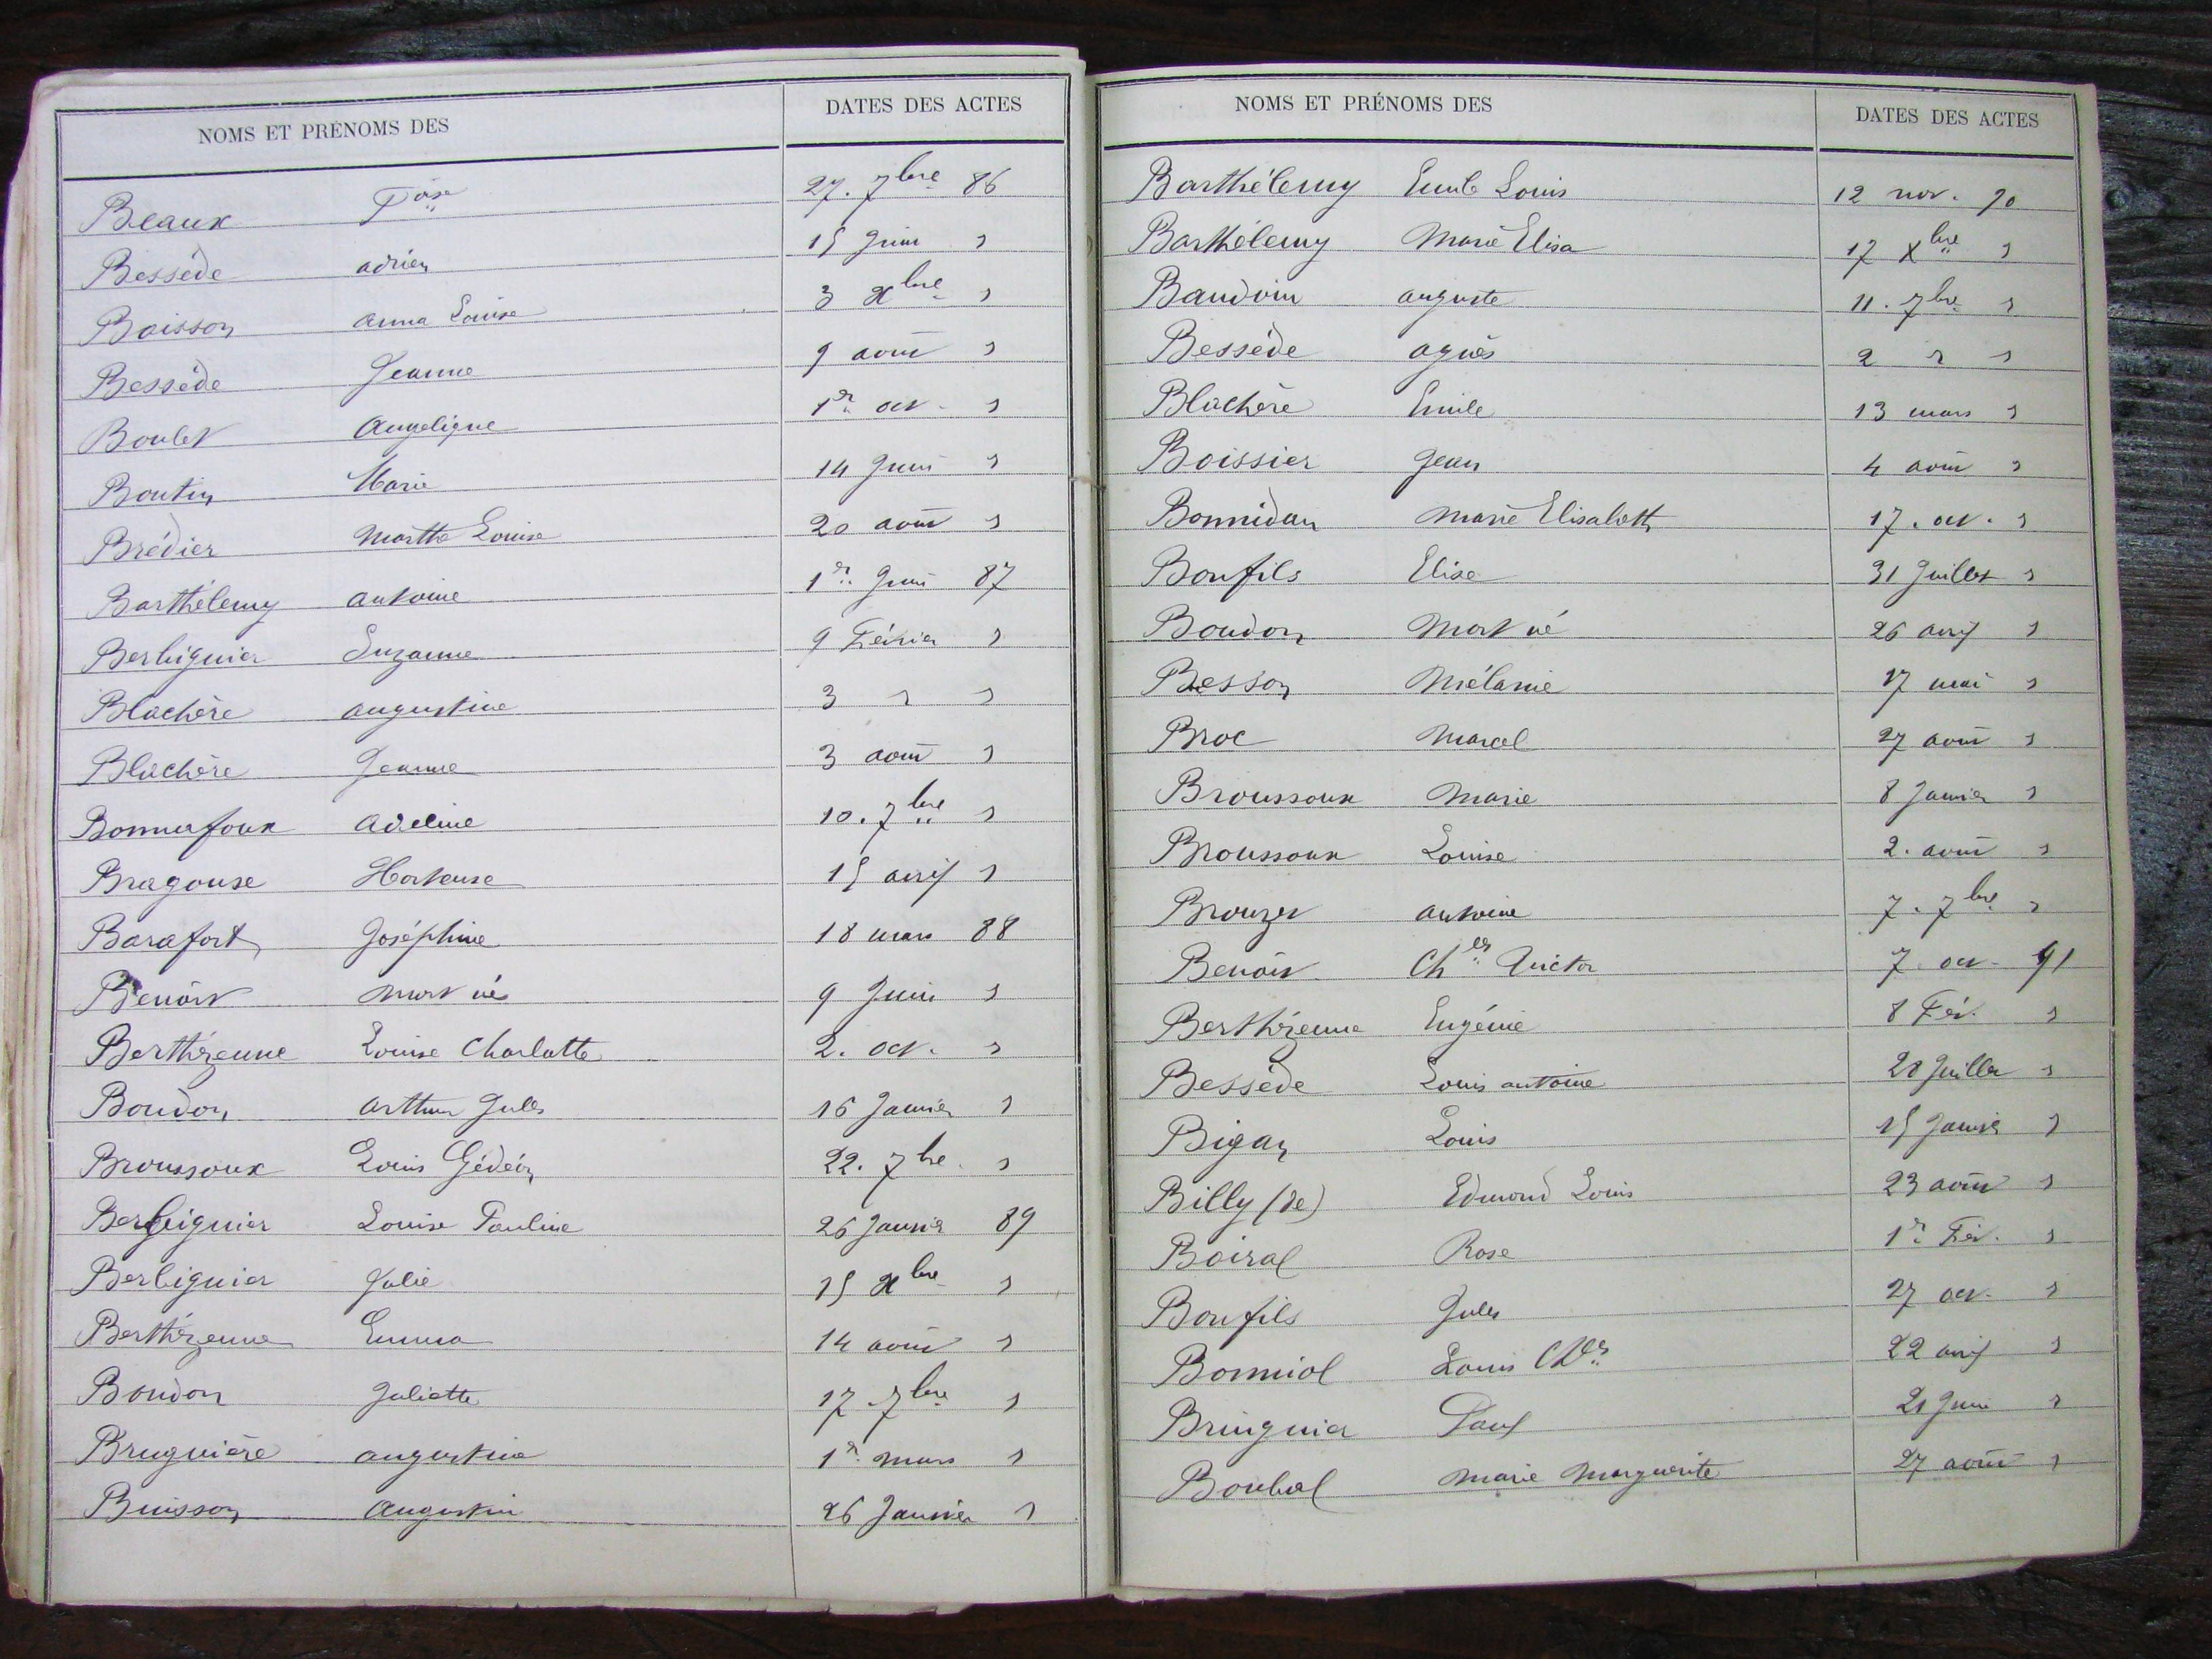 NOMS ET PRÉNOMS DES DATES DES ACTES
Beaux Fçise 27. 7bre 86
Bessède adrien 15 Juin "
Boisson anna Louise 3 Xbre "
Bessède Jeanne 9 août "
Boulet Angelique 1er oct. "
Boutin Marie 14 Juin "
Brédier Marthe Louise 20 août "
Barthélemy antoine 1er Juin 87
Berbiguier Suzanne 9 Février "
Blachère augustine 3 " "
Blachère Jeanne 3 août "
Bonnafoux Adeline 10. 7bre "
Bragouse Hortense 15 avril "
Barafort Joséphine 18 mars 88
Benoit mort né 9 Juin "
Berthézenne Louise Charlotte 2. oct. "
Boudon arthur Jules 16 Janvier "
Broussoux Louis Gédéon 22. 7bre "
Berbiguier Louise Pauline 26 Janvier 89
Berbiguier Julie 15 Xbre "
Berthézenne Emma 14 août "
Boudon Juliette 17. 7bre "
Bruguière augustine 1er mars "
Buisson Augustin 26 Janvier "
NOMS ET PRÉNOMS DES DATES DES ACTES
Barthélemy Emile Louis 12 nov. 90
Barthélemy Marie Elisa 17 Xbre "
Baudoin auguste 11. 7bre "
Bessède agnès 2 " "
Blachère Emile 13 mars "
Boissier Jean 4 août "
Bonnidan Marie Elisabeth 17. oct. "
Bonfils Elise 31 Juillet "
Boudon Mort né 26 avril "
Besson Mélanie 17 mai "
Broc Marcel 27 août "
Broussoux Marie 8 Janvier "
Broussoux Louise 2. août "
Brouzet antoine 7. 7bre "
Benoit Chles Victor 7 oct. 91
Berthézenne Eugénie 8 Fév. "
Bessède Louis antoine 28 Juillet "
Bigan Louis 15 Janvier "
Billy (de) Edmond Louis 23 août "
Boiral Rose 1er Fév. "
Bonfils Jules 27 oct. "
Bonniol Louis Chles 22 avril "
Bringuier Paul 21 Juin "
Boubal Marie Marguerite 27 août "